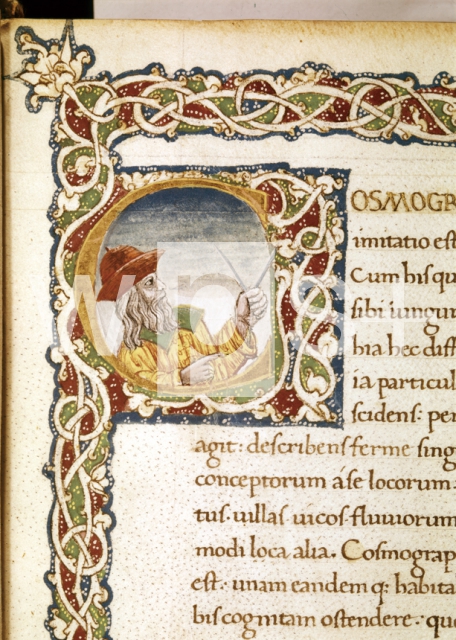 COSMOGR
imitatio est
Cum his qu
sibi iungun
bia hec diff
ia particul
scidens: per
agit: describens ferme sing
conceptorum áse locorum
tus. uillas uicos. fluuiorum
modi loca alia. Cosmograp
est. unam eandem q: habita
bis cognitam ostendere. que